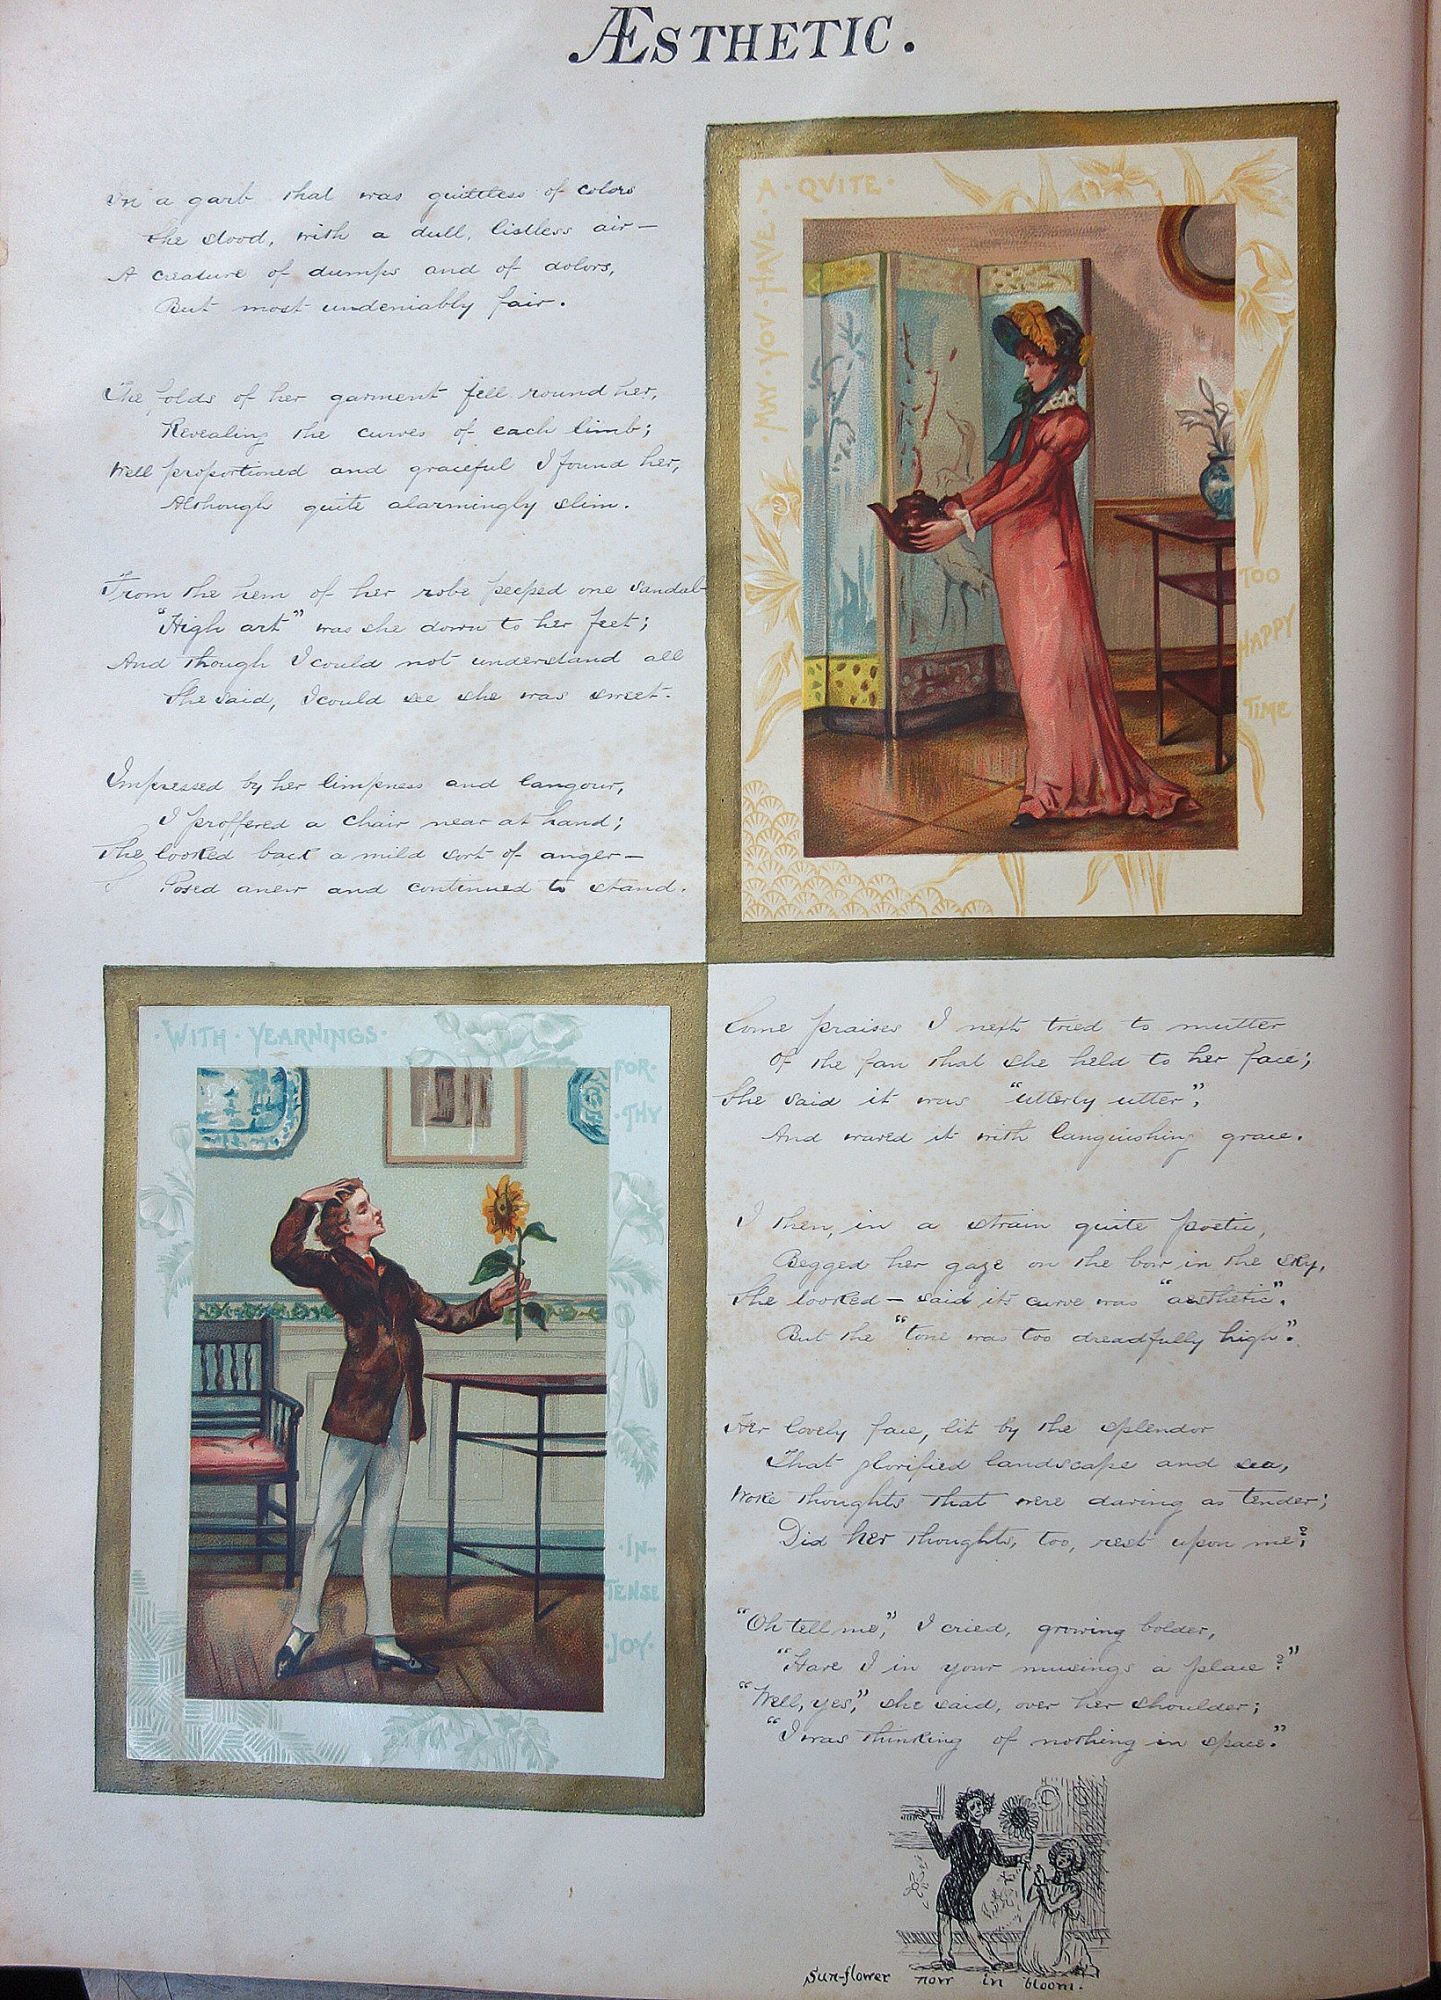 ÆSTHETIC.
In a garb that was guiltless of colors
She stood, with a dull, listless air—
A creature of dumps and of dolors,
But most undeniably fair.
The folds of her garment fell round her,
Revealing the curves of each limb;
Well proportioned and graceful I found her,
Although quite alarmingly slim.
From the hem of her robe peeped one sandal—
"High art" was she down to her feet;
And though I could not understand all
She said, I could see she was sweet.
Impressed by her limpness and langour,
I proffered a chair near at hand;
She looked back a mild sort of anger—
Posed anew and continued to stand.
MAY·YOV·HAVE·A·QVITE·
TOO
HAPPY
TIME
·WITH·YEARNINGS·
FOR·
·THY
·IN-
TENSE
·JOY·
Some praises I next tried to mutter
Of the fan that she held to her face;
She said it was "utterly utter",
And waved it with languishing grace.
I then, in a strain quite poetic,
Begged her gaze on the bow in the sky,
She looked — said its curve was "aesthetic".
But the "tone was too dreadfully high".
Her lovely face, lit by the splendor
That glorified landscape and sea,
Woke thoughts that were daring as tender;
Did her thoughts, too, rest upon me?
"Oh tell me," I cried, growing bolder,
"Have I in your musings a place?"
"Well, yes," she said, over her shoulder;
"I was thinking of nothing in space."
Sun-flower now in bloom.